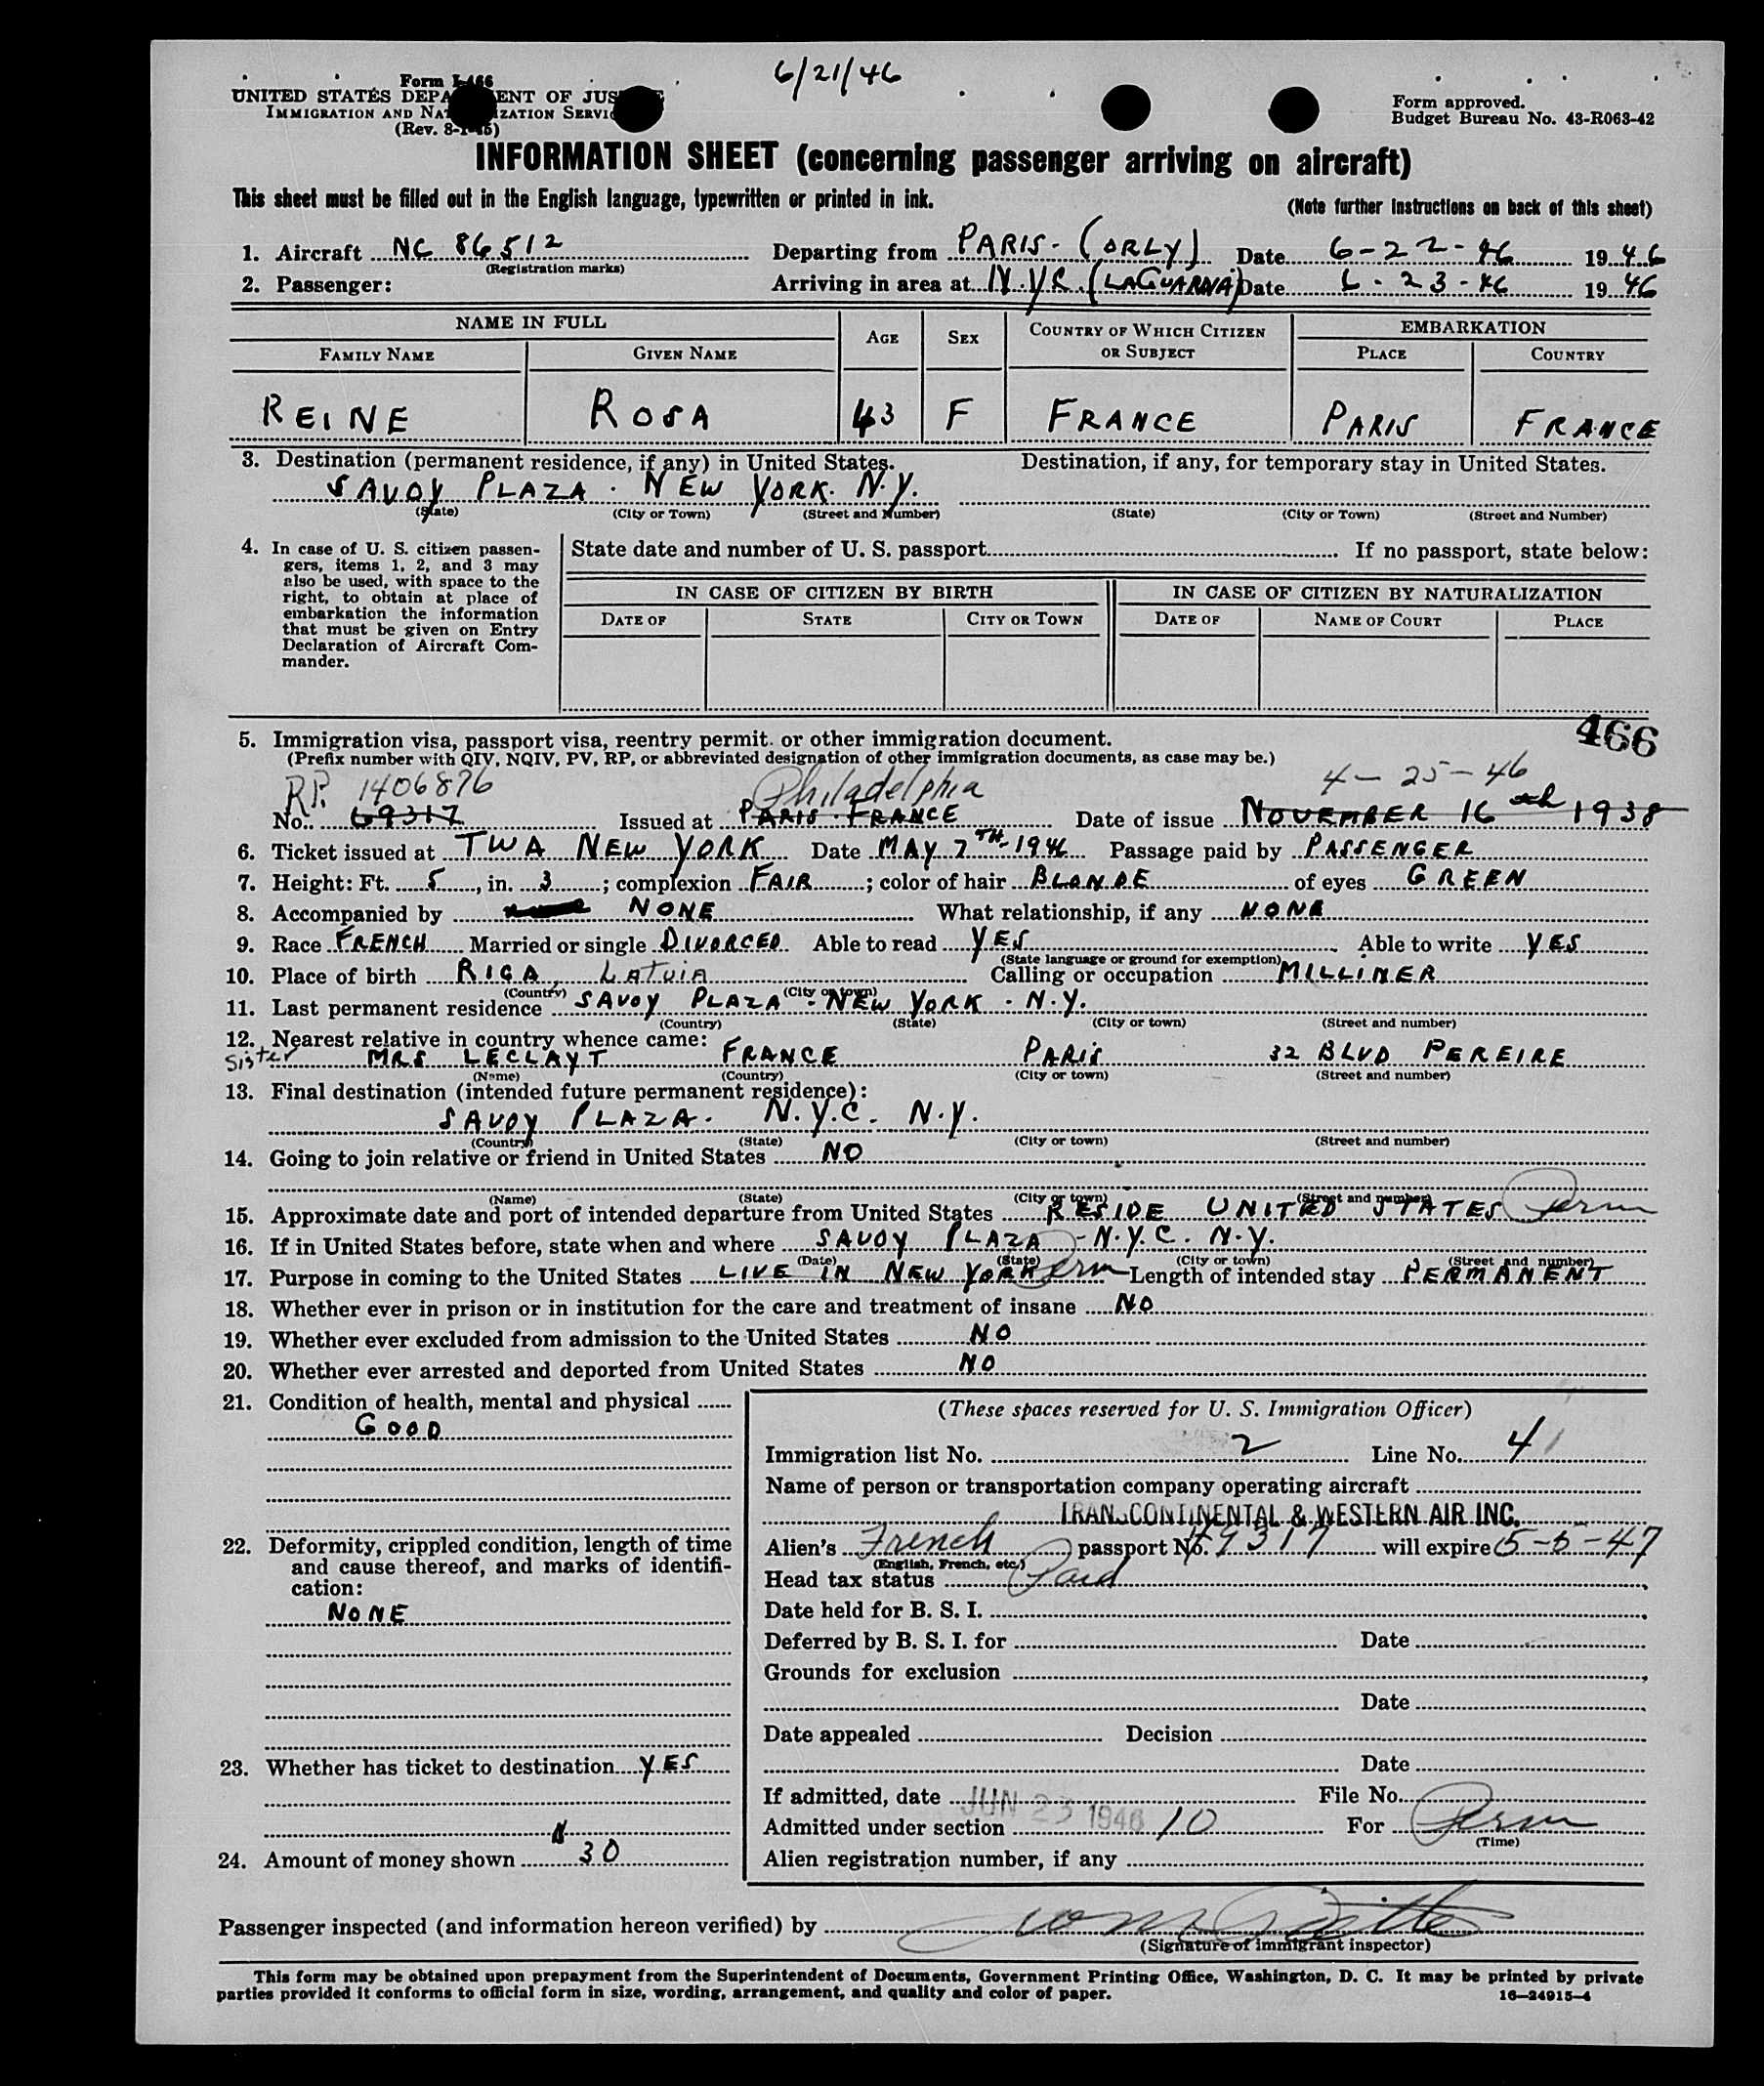 6/21/46
Form I-466
UNITED STATES DEPARTMENT OF JUSTICE
IMMIGRATION AND NATURALIZATION SERVICE
(Rev. 8-1-45)
Form approved.
Budget Bureau No. 43-R063-42
INFORMATION SHEET (concerning passenger arriving on aircraft)
This sheet must be filled out in the English language, typewritten or printed in ink.
(Note further instructions on back of this sheet)
1. Aircraft NC 86512 Departing from PARIS - (ORLY) Date 6-22-46 1946
(Registration marks)
2. Passenger: Arriving in area at N.Y.C. (LAGUARDIA) Date 6-23-46 1946
NAME IN FULL AGE SEX COUNTRY OF WHICH CITIZEN OR SUBJECT EMBARKATION
FAMILY NAME GIVEN NAME PLACE COUNTRY
REINE ROSA 43 F FRANCE PARIS FRANCE
3. Destination (permanent residence, if any) in United States. Destination, if any, for temporary stay in United States.
SAVOY PLAZA. NEW YORK. N.Y.
(State) (City or Town) (Street and Number) (State) (City or Town) (Street and Number)
4. In case of U. S. citizen passengers, items 1, 2, and 3 may also be used, with space to the right, to obtain at place of embarkation the information that must be given on Entry Declaration of Aircraft Commander.
State date and number of U. S. passport If no passport, state below:
IN CASE OF CITIZEN BY BIRTH IN CASE OF CITIZEN BY NATURALIZATION
DATE OF STATE CITY OR TOWN DATE OF NAME OF COURT PLACE
466
5. Immigration visa, passport visa, reentry permit. or other immigration document.
(Prefix number with QIV, NQIV, PV, RP, or abbreviated designation of other immigration documents, as case may be.)
R.P. 1406876 Philadelphia 4-25-46
No. 69317 Issued at PARIS. FRANCE Date of issue NOVEMBER 16 th 1938
6. Ticket issued at TWA NEW YORK Date MAY 7TH-1946 Passage paid by PASSENGER
7. Height: Ft. 5, in. 3; complexion FAIR; color of hair BLONDE of eyes GREEN
8. Accompanied by NONE What relationship, if any NONE
9. Race FRENCH Married or single DIVORCED Able to read YES Able to write YES
(State language or ground for exemption)
10. Place of birth RIGA, LATVIA Calling or occupation MILLINER
(Country) (City or town)
11. Last permanent residence SAVOY PLAZA - NEW YORK . N.Y.
(Country) (State) (City or town) (Street and number)
12. Nearest relative in country whence came:
Sister MRS LECLAYT FRANCE PARIS 32 BLVD PEREIRE
(Name) (Country) (City or town) (Street and number)
13. Final destination (intended future permanent residence):
SAVOY PLAZA. N.Y.C. N.Y.
(Country) (State) (City or town) (Street and number)
14. Going to join relative or friend in United States NO
(Name) (State) (City or town) (Street and number)
15. Approximate date and port of intended departure from United States RESIDE UNITED STATES Perm
16. If in United States before, state when and where SAVOY PLAZA - N.Y.C. N.Y.
(Date) (State) (City or town) (Street and number)
17. Purpose in coming to the United States LIVE IN NEW YORK Perm Length of intended stay PERMANENT
18. Whether ever in prison or in institution for the care and treatment of insane NO
19. Whether ever excluded from admission to the United States NO
20. Whether ever arrested and deported from United States NO
21. Condition of health, mental and physical
GOOD
22. Deformity, crippled condition, length of time and cause thereof, and marks of identification:
NONE
23. Whether has ticket to destination YES
24. Amount of money shown 30
(These spaces reserved for U. S. Immigration Officer)
Immigration list No. 2 Line No. 4
Name of person or transportation company operating aircraft
TRANSCONTINENTAL & WESTERN AIR INC.
Alien's French passport No. 49317 will expire 5-5-47
(English, French, etc.)
Head tax status Paid
Date held for B. S. I.
Deferred by B. S. I. for Date
Grounds for exclusion
Date
Date appealed Decision
Date
If admitted, date JUN 23 1946 File No.
Admitted under section 10 For Perm
(Time)
Alien registration number, if any
Passenger inspected (and information hereon verified) by
(Signature of immigrant inspector)
This form may be obtained upon prepayment from the Superintendent of Documents, Government Printing Office, Washington, D. C. It may be printed by private
parties provided it conforms to official form in size, wording, arrangement, and quality and color of paper.
16—24915-4